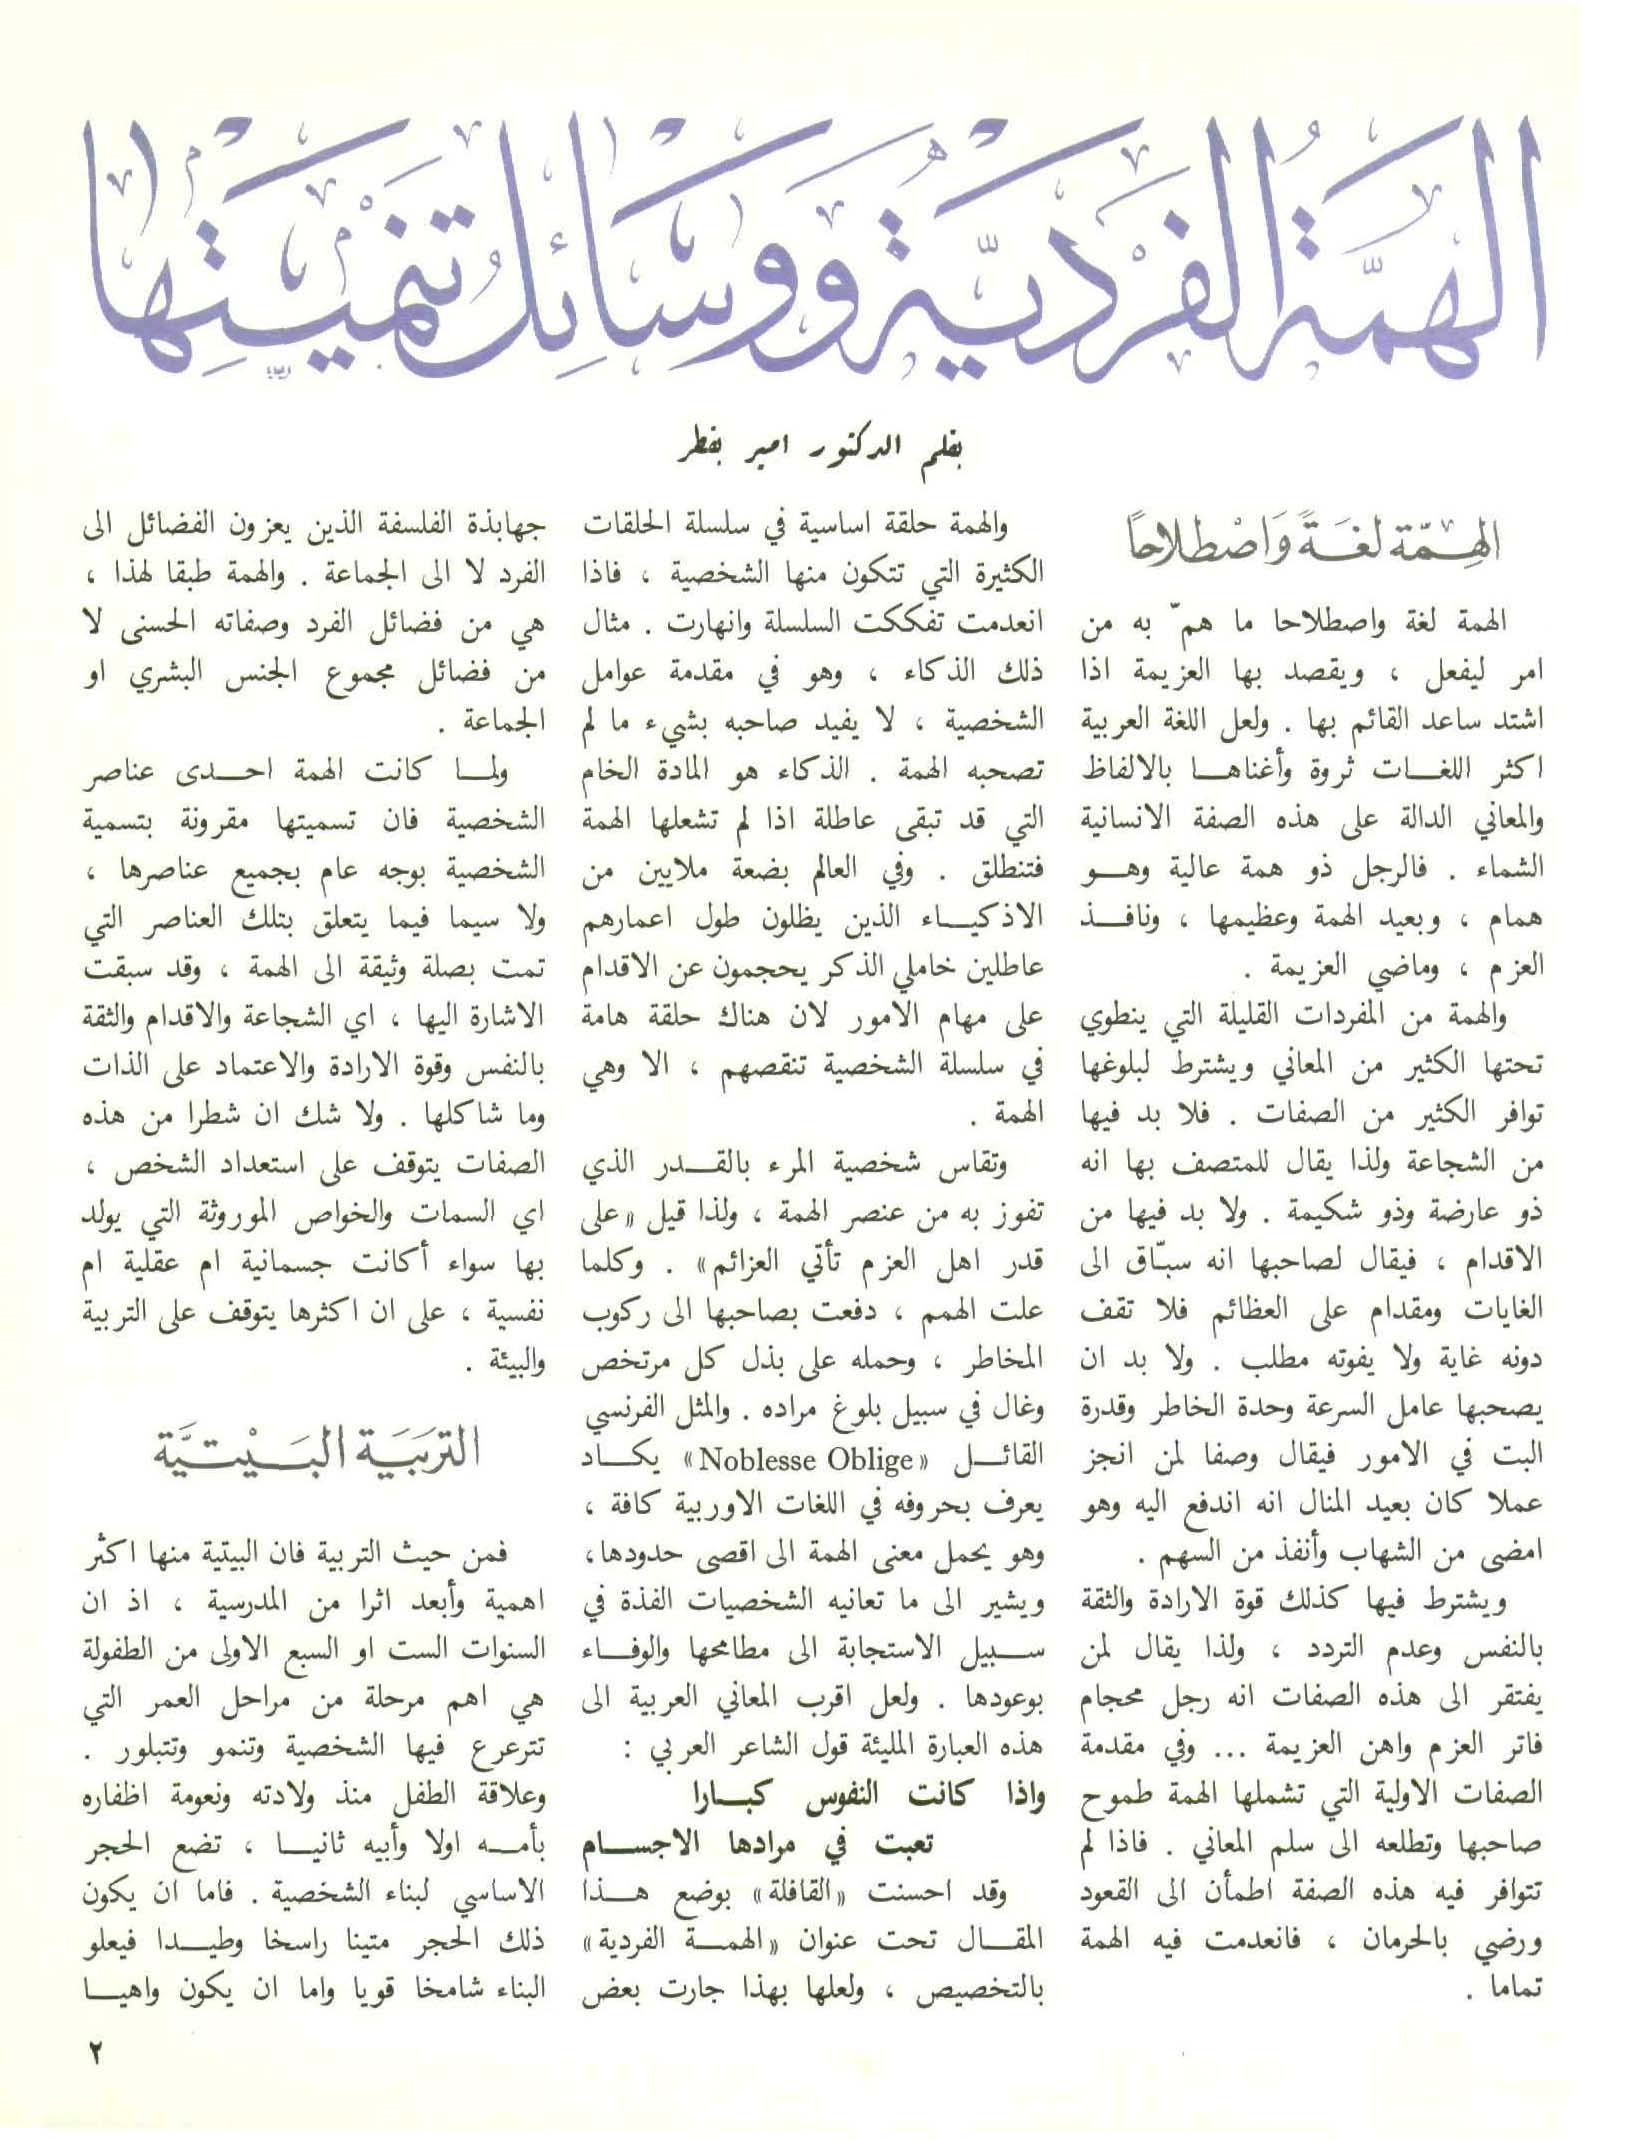 الهمة الفردية ووسائل تنميتها
بقلم الدكتور امير بقطر
الهِمّة لغَةً وَاصْطلاحاً
الهمة لغة واصطلاحا ما همّ به من
امر ليفعل ، ويقصد بها العزيمة اذا
اشتد ساعد القائم بها . ولعل اللغة العربية
اكثر اللغات ثروة وأغناها بالالفاظ
والمعاني الدالة على هذه الصفة الانسانية
الشماء . فالرجل ذو همة عالية وهو
همام ، وبعيد الهمة وعظيمها ، ونافذ
العزم ، وماضي العزيمة .
والهمة من المفردات القليلة التي ينطوي
تحتها الكثير من المعاني ويشترط لبلوغها
توافر الكثير من الصفات . فلا بد فيها
من الشجاعة ولذا يقال للمتصف بها انه
ذو عارضة وذو شكيمة . ولا بد فيها من
الاقدام ، فيقال لصاحبها انه سبّاق الى
الغايات ومقدام على العظائم فلا تقف
دونه غاية ولا يفوته مطلب . ولا بد ان
يصحبها عامل السرعة وحدة الخاطر وقدرة
البت في الامور فيقال وصفا لمن انجز
عملا كان بعيد المنال انه اندفع اليه وهو
امضى من الشهاب وأنفذ من السهم .
ويشترط فيها كذلك قوة الارادة والثقة
بالنفس وعدم التردد ، ولذا يقال لمن
يفتقر الى هذه الصفات انه رجل محجام
فاتر العزم واهن العزيمة ... وفي مقدمة
الصفات الاولية التي تشملها الهمة طموح
صاحبها وتطلعه الى سلم المعاني . فاذا لم
تتوافر فيه هذه الصفة اطمأن الى القعود
ورضي بالحرمان ، فانعدمت فيه الهمة
تماما .
والهمة حلقة اساسية في سلسلة الحلقات
الكثيرة التي تتكون منها الشخصية ، فاذا
انعدمت تفككت السلسلة وانهارت . مثال
ذلك الذكاء ، وهو في مقدمة عوامل
الشخصية ، لا يفيد صاحبه بشيء ما لم
تصحبه الهمة . الذكاء هو المادة الخام
التي قد تبقى عاطلة اذا لم تشعلها الهمة
فتنطلق . وفي العالم بضعة ملايين من
الاذكياء الذين يظلون طول اعمارهم
عاطلين خاملي الذكر يحجمون عن الاقدام
على مهام الامور لان هناك حلقة هامة
في سلسلة الشخصية تنقصهم ، الا وهي
الهمة .
وتقاس شخصية المرء بالقدر الذي
تفوز به من عنصر الهمة ، ولذا قيل «على
قدر اهل العزم تأتي العزائم» . وكلما
علت الهمم ، دفعت بصاحبها الى ركوب
المخاطر ، وحمله على بذل كل مرتخص
وغال في سبيل بلوغ مراده . والمثل الفرنسي
القائل «Noblesse Oblige» يكاد
يعرف بحروفه في اللغات الاوربية كافة ،
وهو يحمل معنى الهمة الى اقصى حدودها،
ويشير الى ما تعانيه الشخصيات الفذة في
سبيل الاستجابة الى مطامحها والوفاء
بوعودها . ولعل اقرب المعاني العربية الى
هذه العبارة المليئة قول الشاعر العربي :
واذا كانت النفوس كبارا
تعبت في مرادها الاجسام
وقد احسنت «القافلة» بوضع هذا
المقال تحت عنوان «الهمة الفردية»
بالتخصيص ، ولعلها بهذا جارت بعض
جهابذة الفلسفة الذين يعزون الفضائل الى
الفرد لا الى الجماعة . والهمة طبقا لهذا ،
هي من فضائل الفرد وصفاته الحسنى لا
من فضائل مجموع الجنس البشري او
الجماعة .
ولما كانت الهمة احدى عناصر
الشخصية فان تسميتها مقرونة بتسمية
الشخصية بوجه عام بجميع عناصرها ،
ولا سيما فيما يتعلق بتلك العناصر التي
تمت بصلة وثيقة الى الهمة ، وقد سبقت
الاشارة اليها ، اي الشجاعة والاقدام والثقة
بالنفس وقوة الارادة والاعتماد على الذات
وما شاكلها . ولا شك ان شطرا من هذه
الصفات يتوقف على استعداد الشخص ،
اي السمات والخواص الموروثة التي يولد
بها سواء أكانت جسمانية ام عقلية ام
نفسية ، على ان اكثرها يتوقف على التربية
والبيئة .
التربَية البَيْتيَّة
فمن حيث التربية فان البيتية منها اكثر
اهمية وأبعد اثرا من المدرسية ، اذ ان
السنوات الست او السبع الاولى من الطفولة
هي اهم مرحلة من مراحل العمر التي
تترعرع فيها الشخصية وتنمو وتتبلور .
وعلاقة الطفل منذ ولادته ونعومة اظفاره
بأمه اولا وأبيه ثانيا ، تضع الحجر
الاساسي لبناء الشخصية . فاما ان يكون
ذلك الحجر متينا راسخا وطيدا فيعلو
البناء شامخا قويا واما ان يكون واهيا
٢